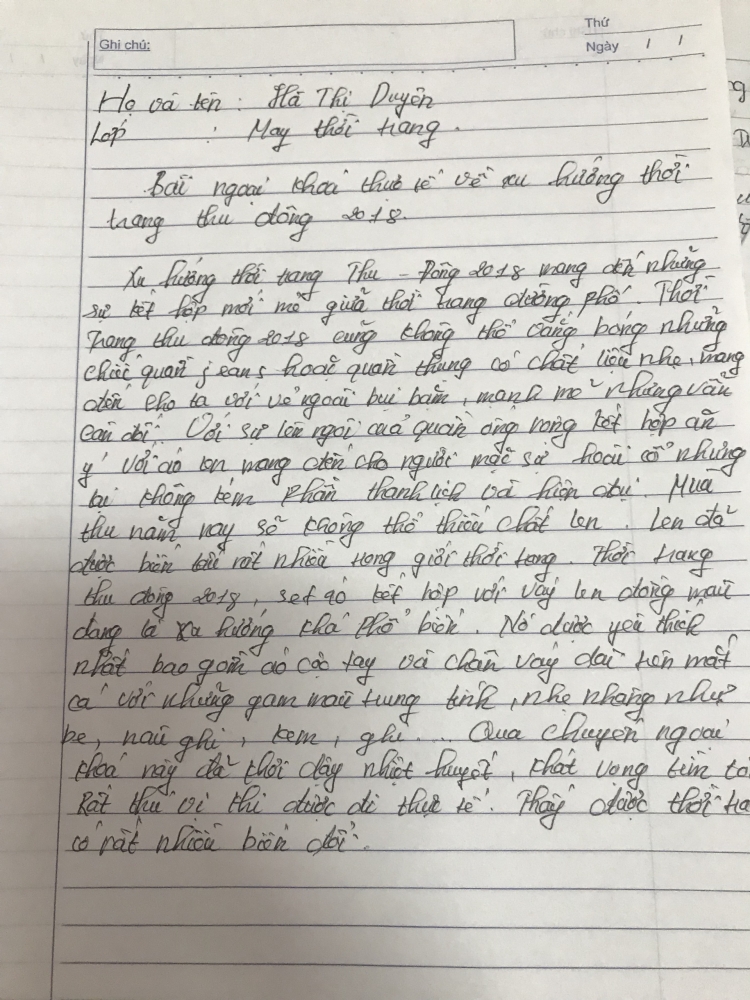 Ghi chú:
Thứ
Ngày / /
Họ và tên : Hà Thị Duyên
Lớp : May thời trang.
Bài ngoại khoá thực tế về xu hướng thời
trang thu đông 2018.
Xu hướng thời trang Thu - Đông 2018 mang đến những
sự kết hợp mới mẻ giữa thời trang đường phố. Thời
trang thu đông 2018 cũng không thể vắng bóng những
chiếc quần jeans hoặc quần thung có chất liệu nhẹ, mang
đến cho ta với vẻ ngoài bụi bặm, mạnh mẽ nhưng vẫn
cân đối. Với sự lên ngôi của quần ống rộng kết hợp ăn
ý với áo len mang đến cho người mặc sự hoài cổ nhưng
lại không kém phần thanh lịch và hiện đại. Mùa
thu năm nay sẽ không thể thiếu chất len. Len đã
được biến tấu rất nhiều trong giới thời trang. Thời trang
thu đông 2018, set áo kết hợp với váy len đồng màu
đang là xu hướng khá phổ biến. Nó được yêu thích
nhất bao gồm áo cộc tay và chân váy dài trên mắt
cá với những gam màu trung tính, nhẹ nhàng như
be, nâu ghi, kem, ghi.... Qua chuyến ngoại
khoá này đã thổi dậy nhiệt huyết, khát vọng tìm tò
Rất thú vị khi được đi thực tế. Thấy được thời tra
có rất nhiều biến đổi.